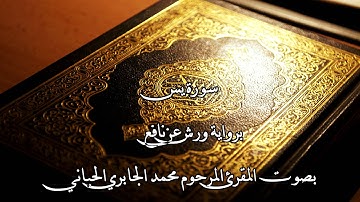 سورة يس
برواية ورش عن نافع
بصوت المقرئ المرحوم محمد الجابري الحياني